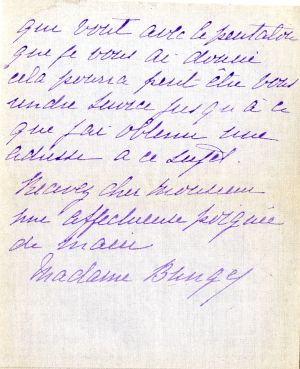 que vont avec le pantalon
que je vous ai donné
cela pourra peut être vous
rendre service jusqu'a ce
que j'ai obtenu une
adresse a ce sujet.
Recevez cher Monsieur
une affectueuse poignée
de main
Madame